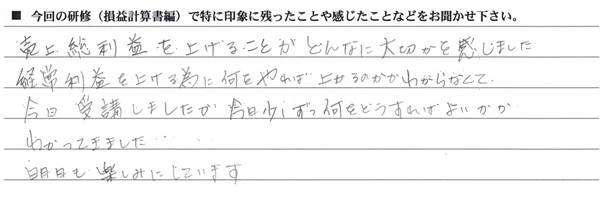 ■ 今回の研修（損益計算書編）で特に印象に残ったことや感じたことなどをお聞かせ下さい。
売上総利益を上げることがどんなに大切かを感じました
経常利益を上げる為に何をやれば上がるのかがわからなくて、
今日受講しましたが今日少しずつ何をどうすればよいかが
わかってきました……
明日も楽しみにしています